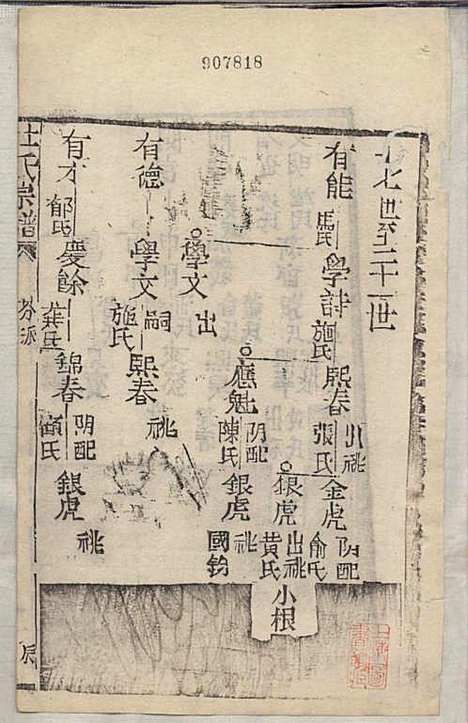 907818
十七世至二十一世
有能 馬氏 學詩 施氏 熙春 張氏 金虎 俞氏 阴配
出祧
銀虎 出祧 黃氏 小根
應魁 陳氏 阴配 銀虎 祧 國鈞
學文 出
有德 學文 嗣 施氏 熙春 祧
有才 郁氏 慶餘 龔氏 錦春 顧氏 阴配 銀虎 祧
杜氏宗譜